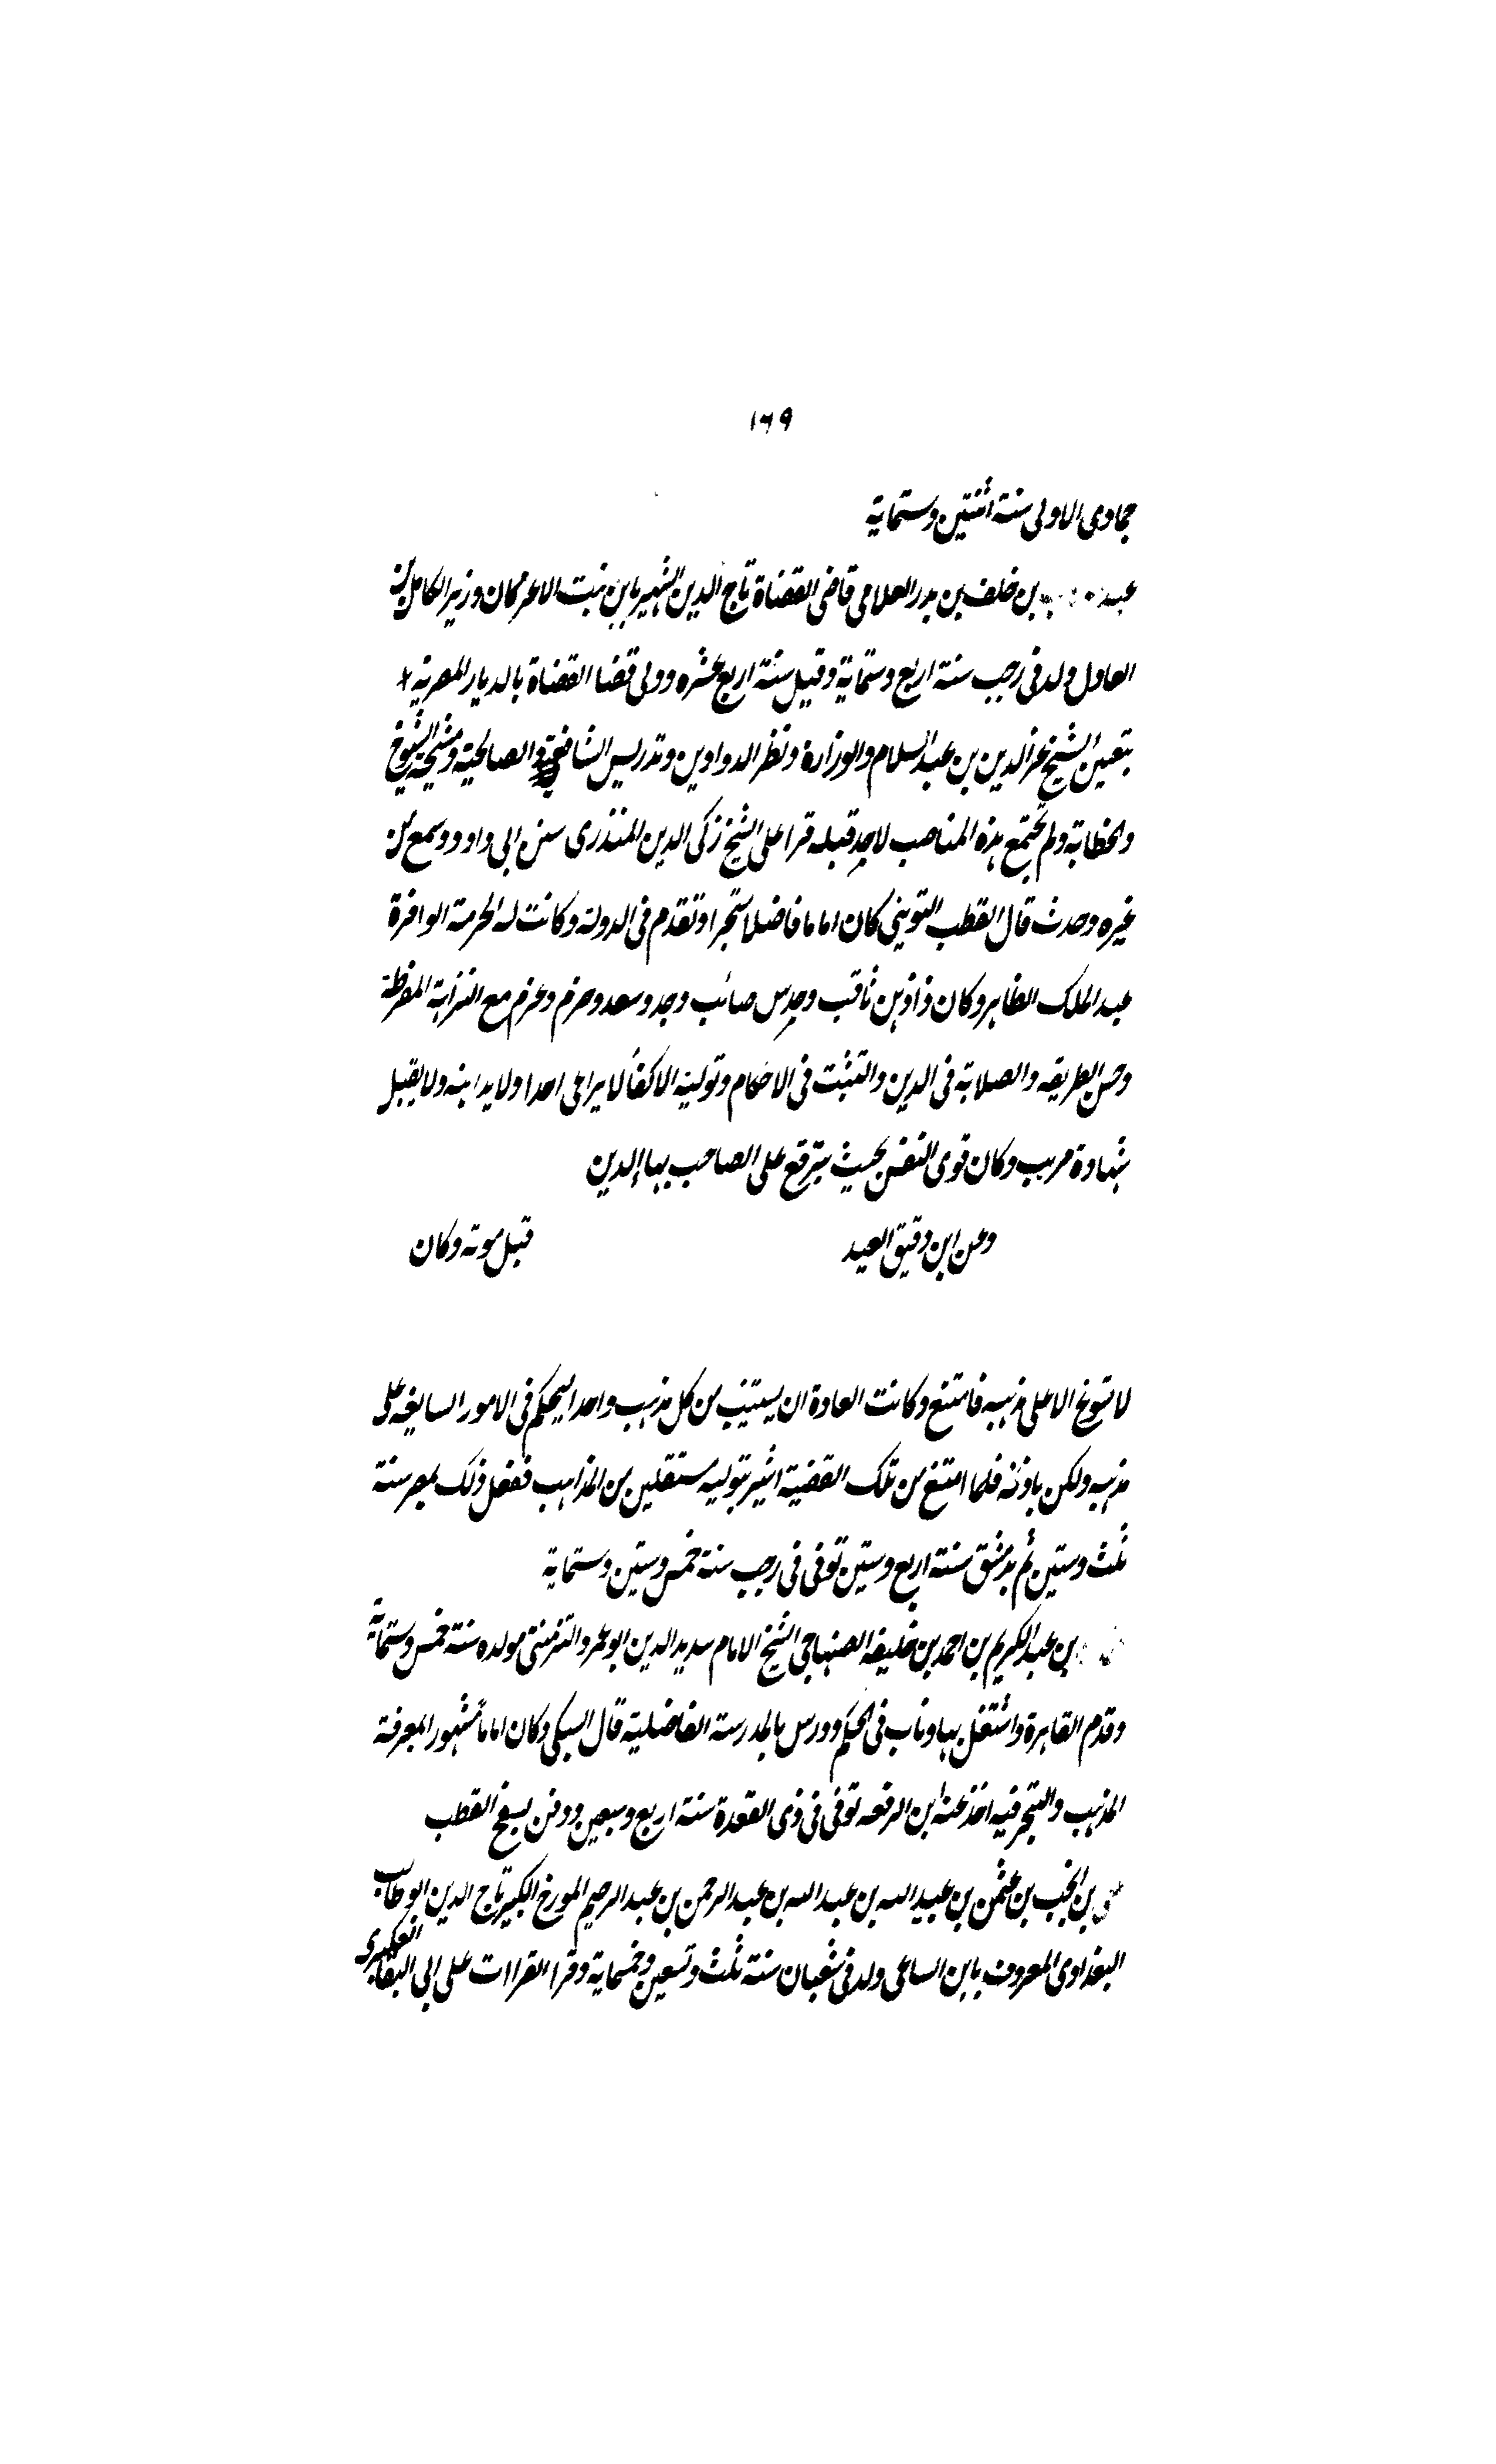 ١٦٩
جمادى الاولى سنة اثنتين وستماية
عبد بن خلف بن بدر العلامى قاضى القضاة تاج الدين الشهير بابن بنت الاعز كان وزير الكامل بن
العادل ولد فى رجب سنة اربع وستماية وقيل سنة اربع عشره وولى قضا القضاة بالديار المصرية
بتعين الشيخ عز الدين بن عبد السلام والوزارة ونظر الدواوين وتدريس الشافعية والصالحية ومشيخة الشيوخ
والخطابة ولم تجتمع هذه المناصب لاحد قبله قرا على الشيخ زكى الدين المنذرى سنن ابى داود وسمع من
غيره وحدث قال القطب اليونينى كان اماما فاضلا متبحرا وتقدم فى الدولة وكانت له الحرمة الوافرة
عند الملك الظاهر وكان ذا ذهن ثاقب وحدس صائب وجد وسعد وحزم وعزم مع النزاهة المفرطة
وحسن الطريقه والصلابة فى الدين والتثبت فى الاحكام وتولية الاكفأ لا يراعى احدا ولا يداهنه ولا يقبل
شهادة مريب وكان قوى النفس بحيث يترفع على الصاحب بهاا الدين
وعن ابن دقيق العيد قبل موته وكان
لا الا على مذهبه فامتنع وكانت العادة ان يستنيب من كل مذهب واحدا ليحكم فى الامور السايغه على
مذهبه ولكن باذنه فلما امتنع من تلك القضية اشير بتوليه مستقلين من المذاهب ففعل ذلك بمصر سنة
ثلث وستين ثم بدمشق سنة اربع وستين توفى فى رجب سنة خمس وستين وستماية
بن عبد الكريم بن احمد بن خليفه الصنهاجى الشيخ الامام سديد الدين ابو عمرو التزمنتى مولده سنة خمس وستماية
وقدم القاهرة واشتغل بها وناب فى الحكم ودرس بالمدرسة الفاضلية قال السبكى وكان اماما مشهور المعرفة
المذهب والتبحر فيه اخذ عنه ابن الرفعه توفى فى ذى القعدة سنة اربع وسبعين ودفن بسفح القطب
بن انجب بن عثمن بن عبيد الله بن عبد الله بن عبد الرحمن بن عبد الرحيم المورخ الكبير تاج الدين ابو طالب
البغدادى المعروف بابن الساعى ولد فى شعبان سنة ثلث وتسعين وخمسماية وقرا القراات على ابى البقاء العكبرى